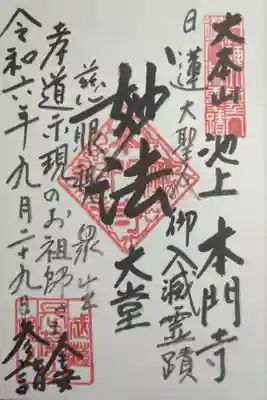 大本山
池上 本門寺
日蓮大聖人御入滅霊蹟
妙法
大堂
慈眼視衆生
孝道示現のお祖師さま
令和六年九月二十九日
参詣